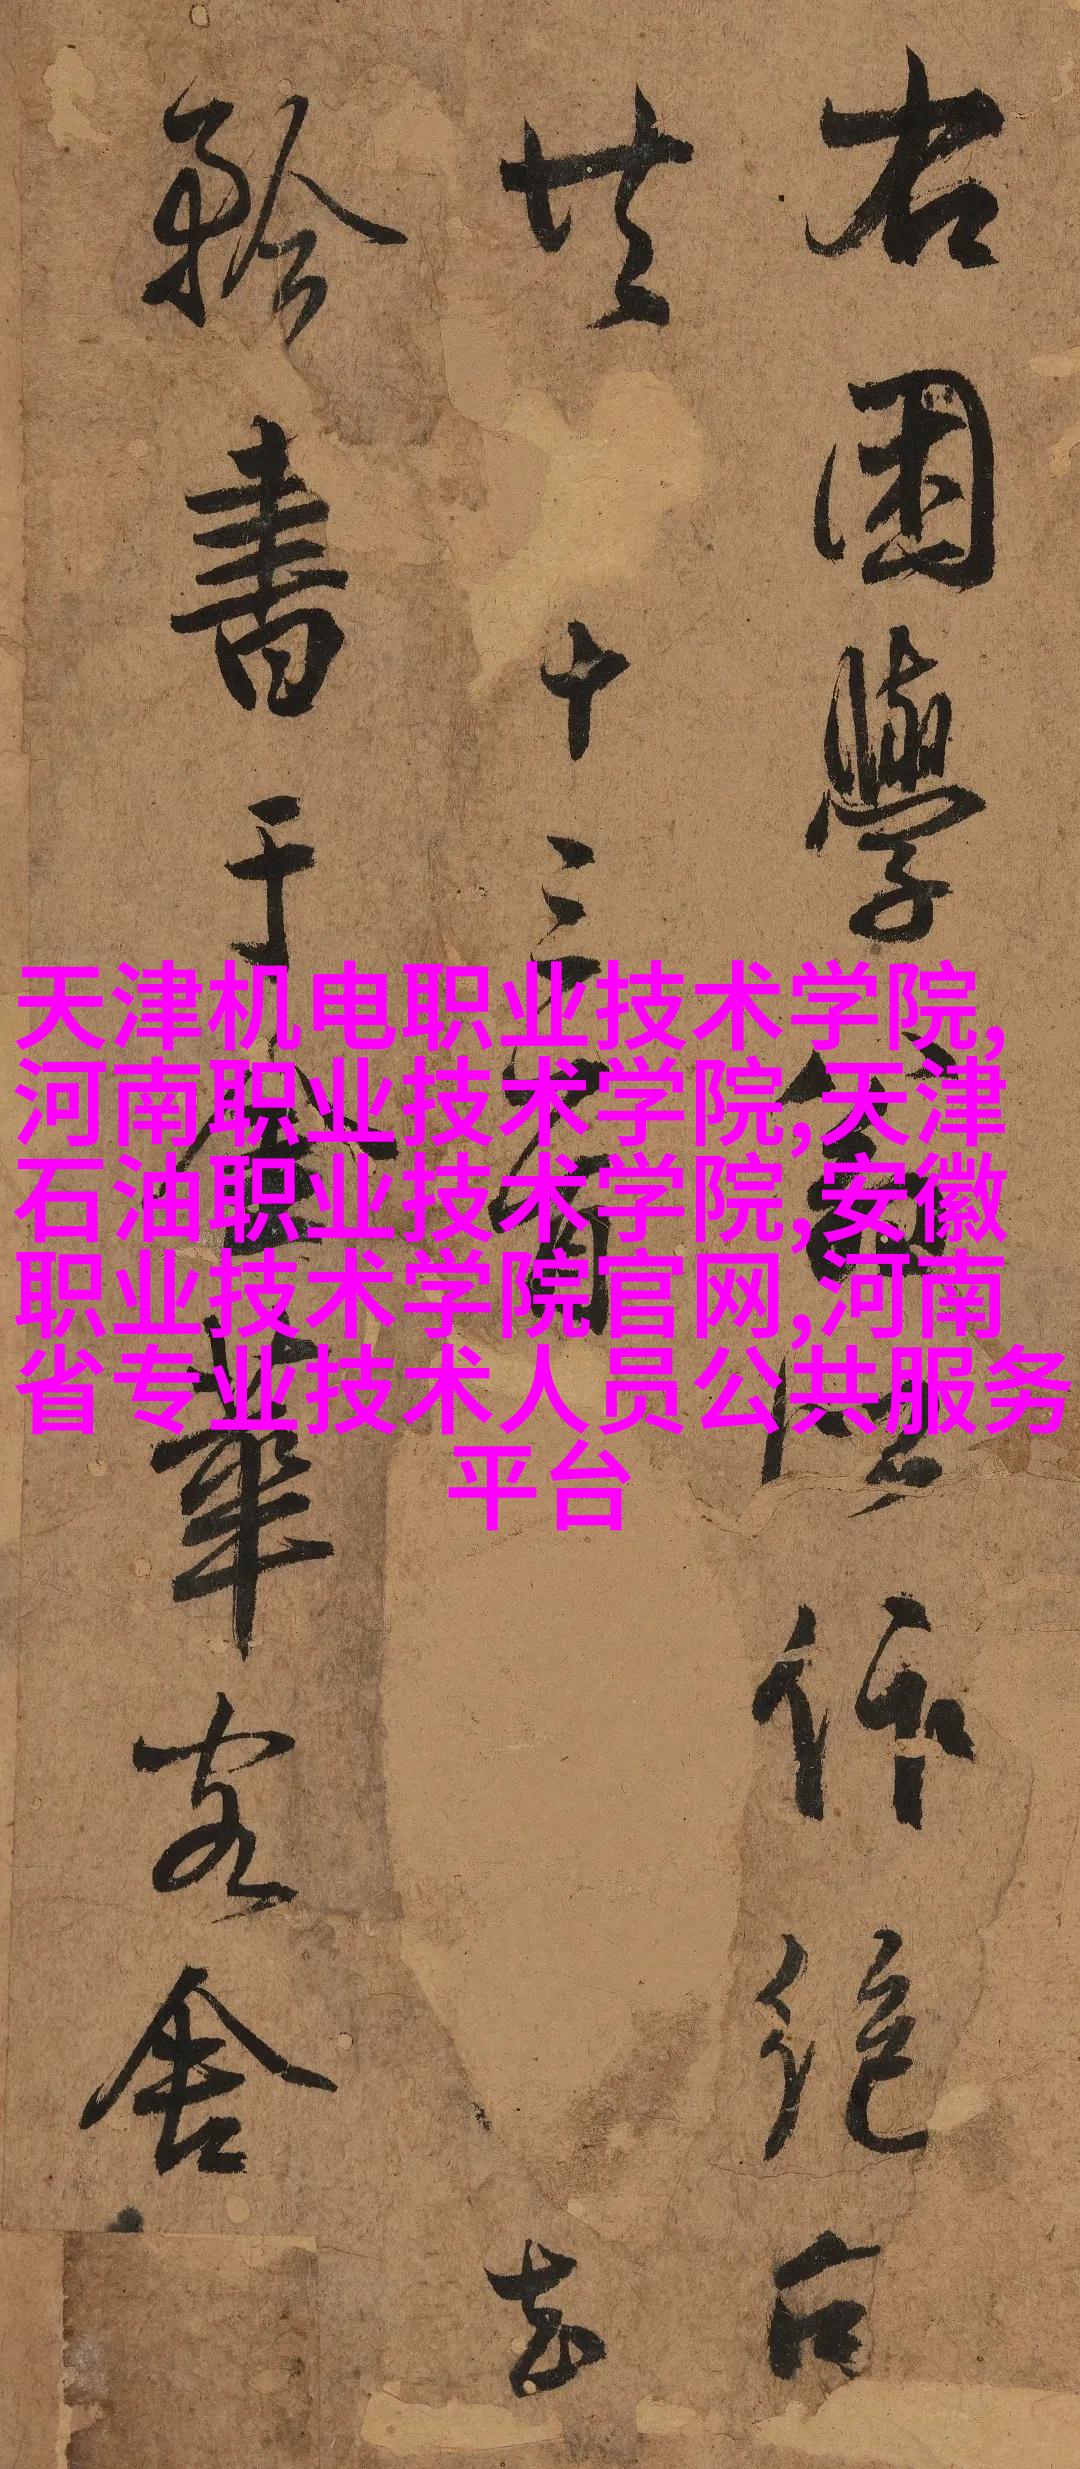 右困學作絕句
共十三首
書于金華客舍
天津机电职业技术学院,
河南职业技术学院,天津
石油职业技术学院,安徽
职业技术学院官网,河南
省专业技术人员公共服务
平台